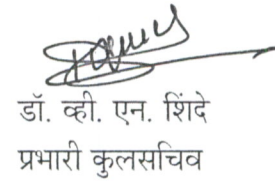 डॉ. व्ही. एन. शिंदे
प्रभारी कुलसचिव